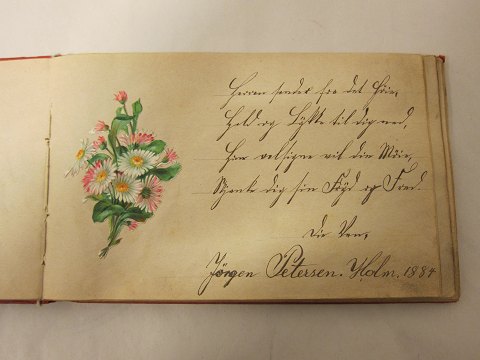 Herren sender fra det Høie,
Held og Lykke til dig ned,
Han velsigne vil din Møie,
Skjenke dig sin Fryd og Fred.
Din Ven,
Jörgen Petersen. Holm. 1884